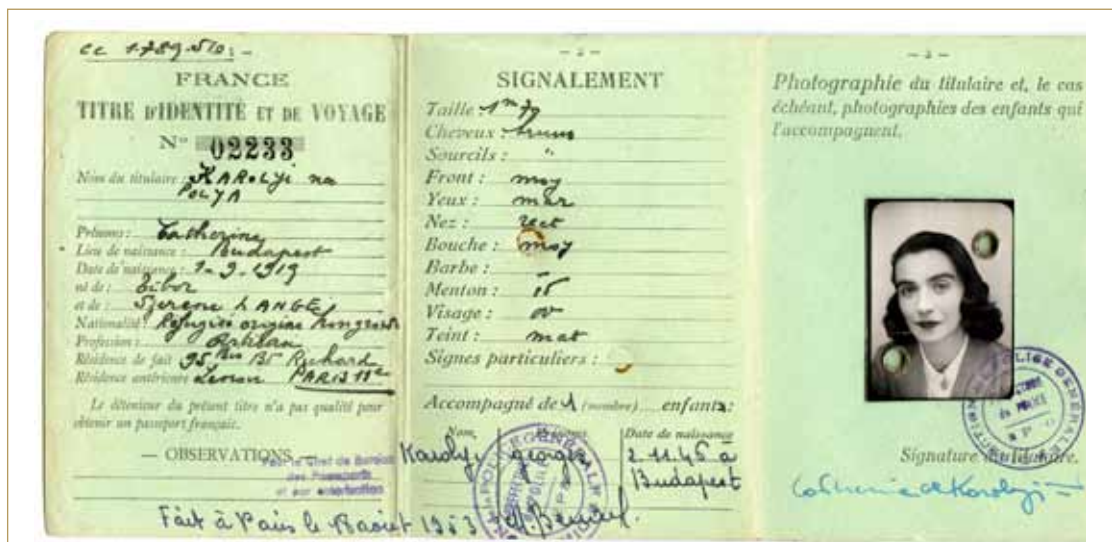 cc 1789510 : -
FRANCE
TITRE D'IDENTITÉ ET DE VOYAGE
N° 02233
Nom du titulaire : KAROLYI na
POLYA
Prénoms : Catherine
Lieu de naissance : Budapest
Date de naissance : 1-9-1919
né de : Tibor
et de : LANGE
Nationalité : Réfugiée origine hongroise
Profession :
Résidence de fait : 95 Bis Bt Richard
Résidence antérieure PARIS 11e
Le détenteur du présent titre n'a pas qualité pour
obtenir un passeport français.
— OBSERVATIONS —
Pour le Chef de Bureau
des Passeports
et par autorisation
Fait à Paris le 18 aout 1953
— 2 —
SIGNALEMENT
Taille : 1m
Cheveux : bruns
Sourcils : "
Front : moy
Yeux : mar
Nez : rect
Bouche : moy
Barbe :
Menton :
Visage : ov
Teint : mat
Signes particuliers :
Accompagné de 1 (nombre) enfants :
Nom, Prénoms Date de naissance
Karolyi georges 2.11.46 à
Budapest
— 3 —
Photographie du titulaire et, le cas
échéant, photographies des enfants qui
l'accompagnent.
POLICE GENERALE
Signature du titulaire,
Catherine de Karolyi